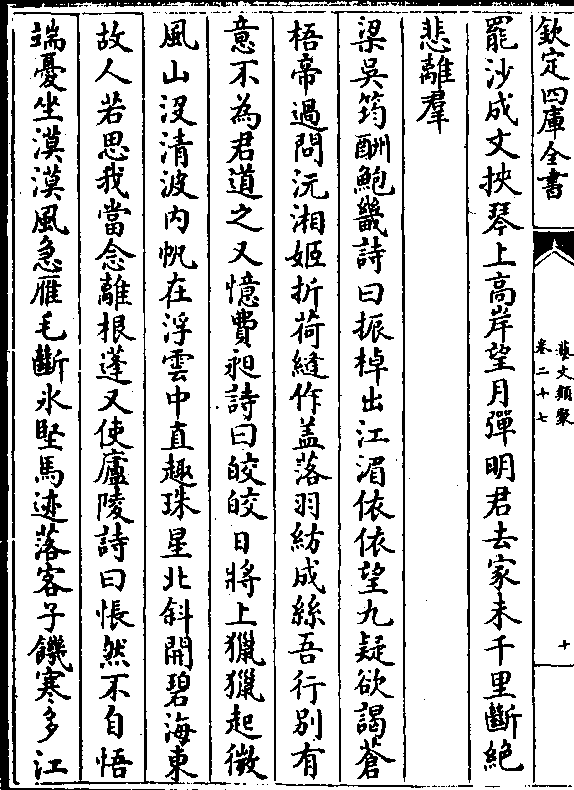 欽定四庫全書
藝文類聚
卷二十七
十
罷沙成文挾琴上高岸望月彈明君去家未千里斷絶
悲離羣
梁吳筠酬鮑畿詩曰振棹出江湄依依望九疑欲謁蒼
梧帝過問沅湘姬折荷縫作盖落羽紡成絲吾行別有
意不為君道之又憶費昶詩曰皎皎日將上獵獵起微
風山沒清波內帆在浮雲中直趣珠星北斜開碧海東
故人若思我當念離根蓬又使廬陵詩曰悵然不自悟
端憂坐漠漠風急雁毛斷氷堅馬迹落客子饑寒多江